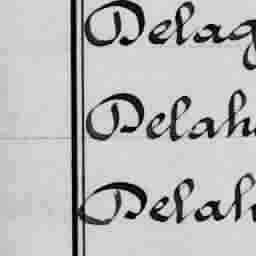 Delag
Delah
Delah